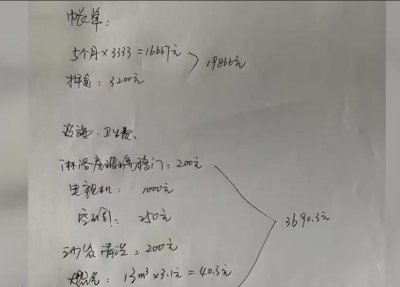 5个月×3333=16667元
19866元
押金:3200元
卫生费
淋浴房玻璃移门:200元
电视机:1000元
空调:250元
3690.3元
沙发清洗:200元
燃气:13m³×3.1元=40.3元